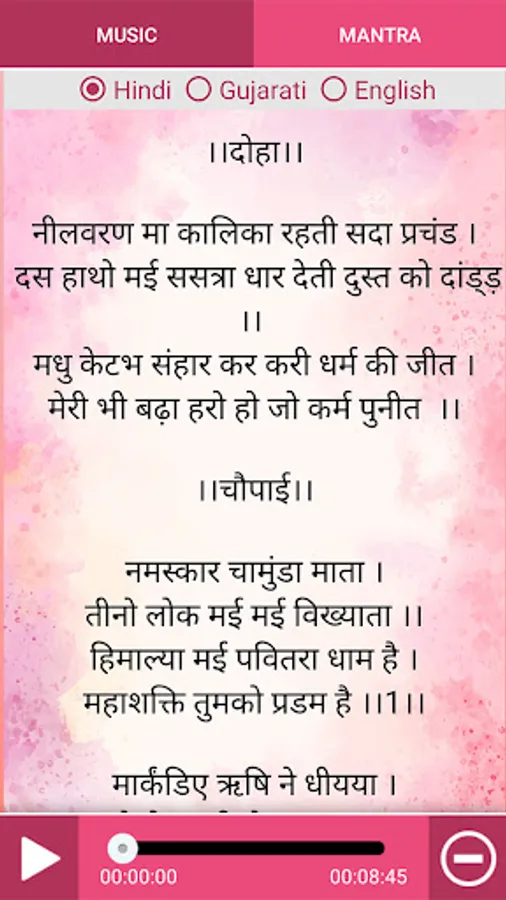 MUSIC MANTRA
Hindi Gujarati English
।।दोहा।।
नीलवरण मा कालिका रहती सदा प्रचंड ।
दस हाथो मई ससत्रा धार देती दुस्त को दांड्ड़
।।
मधु केटभ संहार कर करी धर्म की जीत ।
मेरी भी बढ़ा हरो हो जो कर्म पुनीत ।।
।।चौपाई।।
नमस्कार चामुंडा माता ।
तीनो लोक मई मई विख्याता ।।
हिमाल्या मई पवितरा धाम है ।
महाशक्ति तुमको प्रडम है ।।1।।
मार्कंडिए ऋषि ने धीयया ।
00:00:00 00:08:45